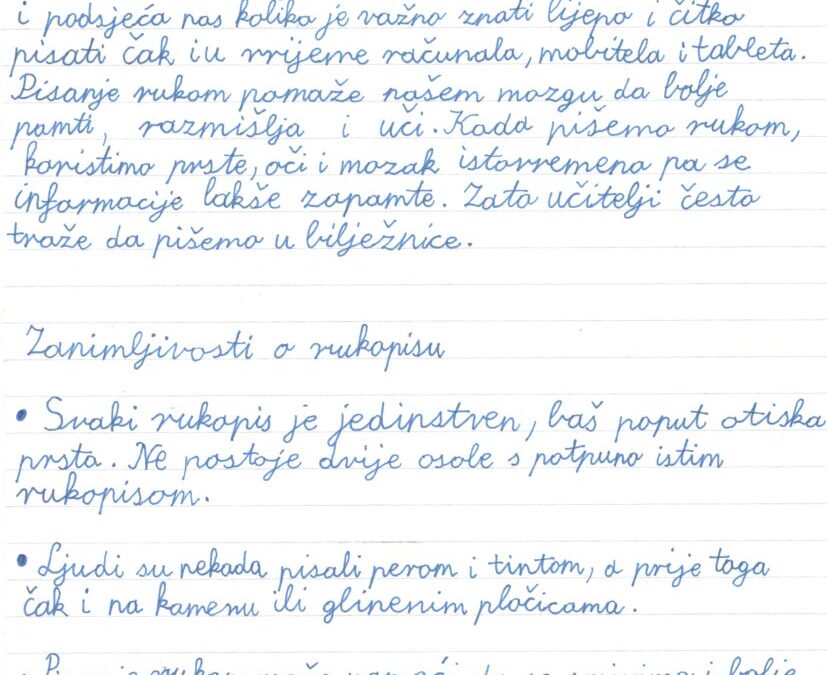 i podsjeća nas koliko je važno znati lijepo i čitko
pisati čak i u vrijeme računala, mobitela i tableta.
Pisanje rukom pomaže našem mozgu da bolje
pamti, razmišlja i uči. Kada pišemo rukom,
koristimo prste, oči i mozak istovremeno pa se
informacije lakše zapamte. Zato učitelji često
traže da pišemo u bilježnice.
Zanimljivosti o rukopisu
• Svaki rukopis je jedinstven, baš poput otiska
prsta. Ne postoje dvije osole s potpuno istim
rukopisom.
• Ljudi su nekada pisali perom i tintom, a prije toga
čak i na kamenu ili glinenim pločicama.
i bolje